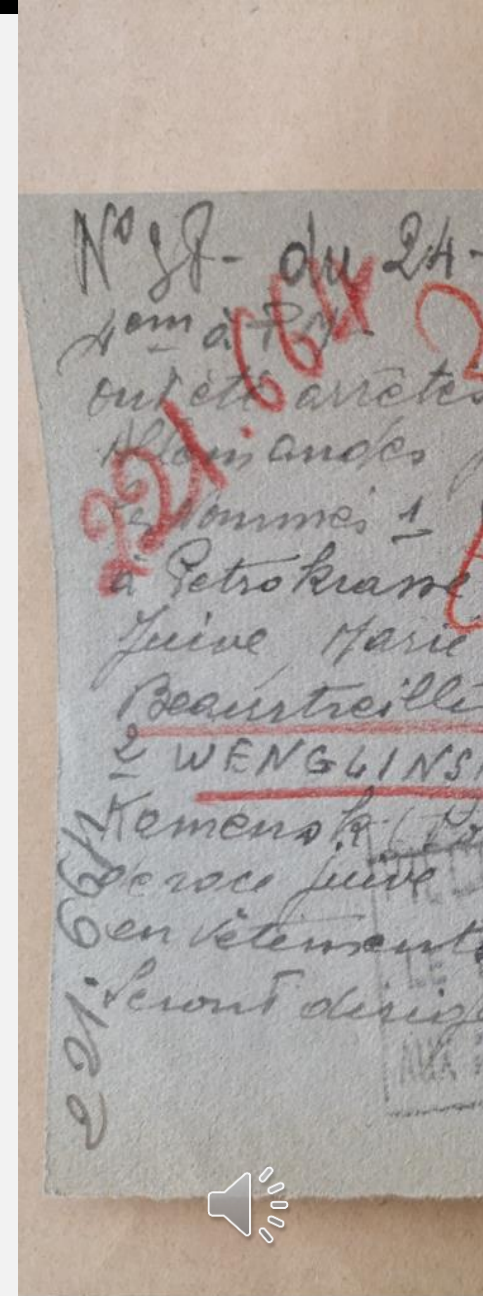 Nº 38 - du 24-
4em à P.M-
221.664
ont été arrêtés
Allemandes
les nommés 1
à Petrokrasse
Juive Marie
Beautreilli
2 WENGLINS
Kamensk (Po
de race juive
en vêtements
Seront dirig
LE
AUX
221.664